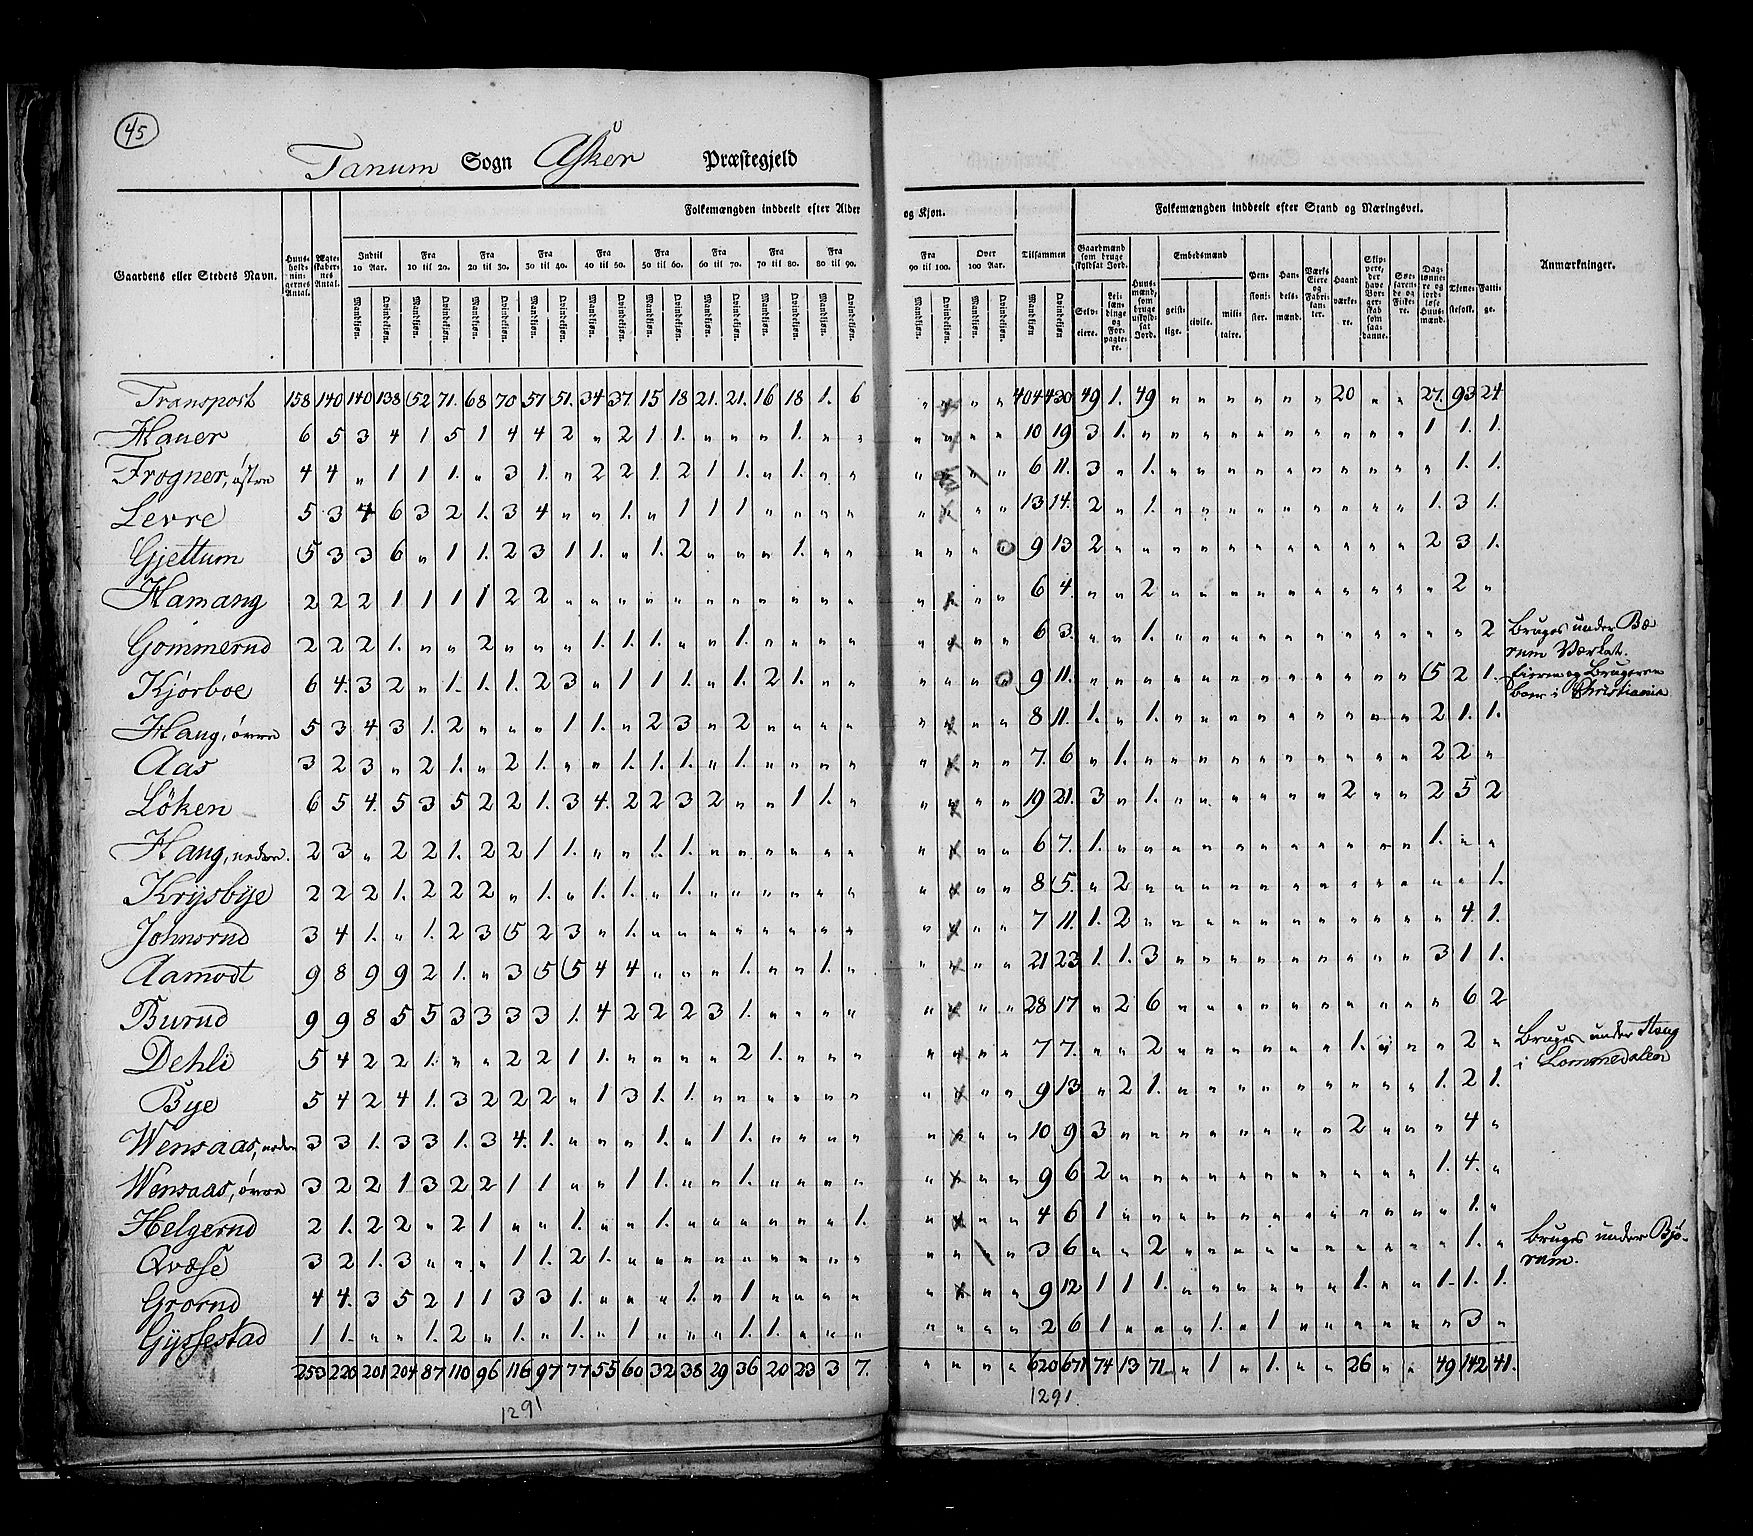 45
Tanum Sogn Asker Præstegjeld
Folkemængden inddeelt efter Alder og Kjøn. Folkemængden inddeelt efter Stand og Næringsvei.
Gaardens eller Stedets Navn. Huusholdningernes Antal. Ægteskabernes Antal. Indtil 10 Aar. Fra 10 til 20. Fra 20 til 30. Fra 30 til 40. Fra 40 til 50. Fra 50 til 60. Fra 60 til 70. Fra 70 til 80. Fra 80 til 90. Fra 90 til 100. Over 100 Aar. Tilsammen Gaardmænd som bruge skyldsat Jord. Huusmænd, som bruge uskyldsat Jord. Embedsmænd Pensionister. Handelsmænd. Værks Eiere og Fabrikanter. Haandværkere. Skippere, der have Borgerskab som saadanne. Søefarende og Fiskere. Daglønnere og jordløse Huusmænd. Tjenestefolk. Fattige. Anmærkninger.
Mandkjøn. Qvindekjøn. Mandkjøn. Qvindekjøn. Mandkjøn. Qvindekjøn. Mandkjøn. Qvindekjøn. Mandkjøn. Qvindekjøn. Mandkjøn. Qvindekjøn. Mandkjøn. Qvindekjøn. Mandkjøn. Qvindekjøn. Mandkjøn. Qvindekjøn. Mandkjøn. Qvindekjøn. Mandkjøn. Qvindekjøn. Mandkjøn Qvindekjøn. Selveiere. Leilændinge og Forpagtere. geistlige. civile. militaire.
Transport 158 140 140 138 52 71. 68 70 57 51. 34 37. 15 18 21. 21. 16 18 1. 6 " " " 404 430 49 1. 49 " " " " " " 20 " " 27. 93 24
Hauer 6 5 3 4 1 5 1 4 4 2 " 2 1 1. " " " 1. " " " " " 10 19 3 1. " " " " " " " " " " 1 1. 1.
Frogner, østre 4 4 " 1 1 1. " 3 1. " 2 2 1. 2 1 1. " 1. " " " " 6 11. 3 " 1. " " " " " " " " " " 1. 1.
Levre 5 3 4 6 3 2 1. 3 4 " " 1. " 1 1 1 " " " " " " " 13 14. 2 " 1. " " " " " " " " " 1. 3 1.
Gjettum 5 3 3 6 " 1 1. 2 3 1 1. " 1. 2 " " " 1. " " " " " 9 13 2 " " " " " " " " " " " 2 3 1.
Hamang 2 2 2 1 1 1 1 2 2 " " " " " " " " " " " " " " 6 4. " " 2 " " " " " " " " " " 2 "
Gommerud 2 2 2 1. " " 2 " " " 1. 1. 1. " " 1. " " " " " " " 6 3. " " 1. " " " " " " " " " " " 2 Bruges under Bæ
rum Værket.
Kjørboe 6 4. 3 2 " 1. 1. 1. 2 3 " 1 1 1. " 1. 2 1. " " " " " 9 11. " " " " " " " " " " " " 5 2 1. Eieren og Brugeren
boer i Christiania
Haug, øvre 5 3 4 3 1. 2 " " " 1 1. " 2 3 " 2 " " " " " " " 8 11. 1. " 1. " " " " " " " " " 2 1. 1.
Aas 3 2 3 " 2 1. " 2 1. " " 1. 1. 1. " 1. " " " " " " " 7. 6 " 1. " " " " " " " " " " 2 2 "
Løken 6 5 4. 5 3 5 2 2 1. 3 4. 2 2 3 2 " " 1 1. " " " " 19 21. 3 " 1. " " " " " " 2 " " 2 5 2
Haug, nedre. 2 3 " 2 2 1. 2 2 1 1. " " 1. 1. " " " " " " " " " 6 7. 1. " " " " " " " " " " " 1. " "
Krysbye 2 2 2 1. 2 2 2 " 1. " 1. 1. " 1. " " " " " " " " " 8 5. " 2 " " " " " " " " " " " " 1.
Johnsrud 3 4 1. " 1. 2 3 5 2 3 " 1. " " " " " " " " " " " 7 11. 1. 2 " " " " " " " " " " " 4. 1.
Aamodt 9 8 9 9 2 1. " 3 5 5 4 4 " " " 1. " " 1. " " " " 21 23 1. 1. 3 " " " " " " " " " 3 1 1.
Burud 9 9 8 5 5 3 3 3 3 1. 4 2 2 2 3 1. " " " " " " " 28 17 " 2 6 " " " " " " " " " " 6 2
Dehli 5 4 2 2 1. " " 2 2 1 1. " " " " 2 1. " " " " " " 7 7. " " 2 " " " " " " 1. " " " 2 " Bruges under Haug
i Lommedalen
Bye 5 4 2 4 1. 3 2 2 2 " 1 3 1. 1. " " " " " " " " " 9 13 " 2 1. " " " " " " " " " 1. 2 1.
Wensaas, nedre 3 3 1. 3 3 1. 3 4. 1. " " " 1. " 1 1. " " " " " " " 10 9 3 " " " " " " " " 2 " " " 4 "
Wensaas, øvre 3 2 2 1 3 2 2 1 1 " " 1 1. " " 1. " " " " " " " 9 6 2 " " " " " " " " " " " 1. 4. "
Helgerud 2 1. 2 2 " 2 1 " " 1. " " 1. " " " " " " 1. " " " 4 6 1 " " " " " " " " " " " " 1. "
Qvæse 3 2 1. 3 " " " 1 1. 2 1. " " " " " " " " " " " " 3 6 " " 2 " " " " " " " " " " 1. " Bruges under Bjø-
rum.
Grorud 4 4. 3 5 2 1 1 3 3 1. " " " 1. " 1. " " " " " " " 9 12 1 1 1. " " " " " " 1. " " 1. 1. 1.
Gyssestad 1 1. " " 1. 2 " 1. " 1. " 1 " " " 1. 1. " " " " " " " 2 6 1 " " " 1. " 1. " " " " " " 3 "
253 220 201 204 87 110 96 116 97 77 55 60 32 38 29 36 20 23 3 7. " " " " 620 671 74 13 71. " 1 " 1. " " 26 " " 49 142 41.
1291 1291